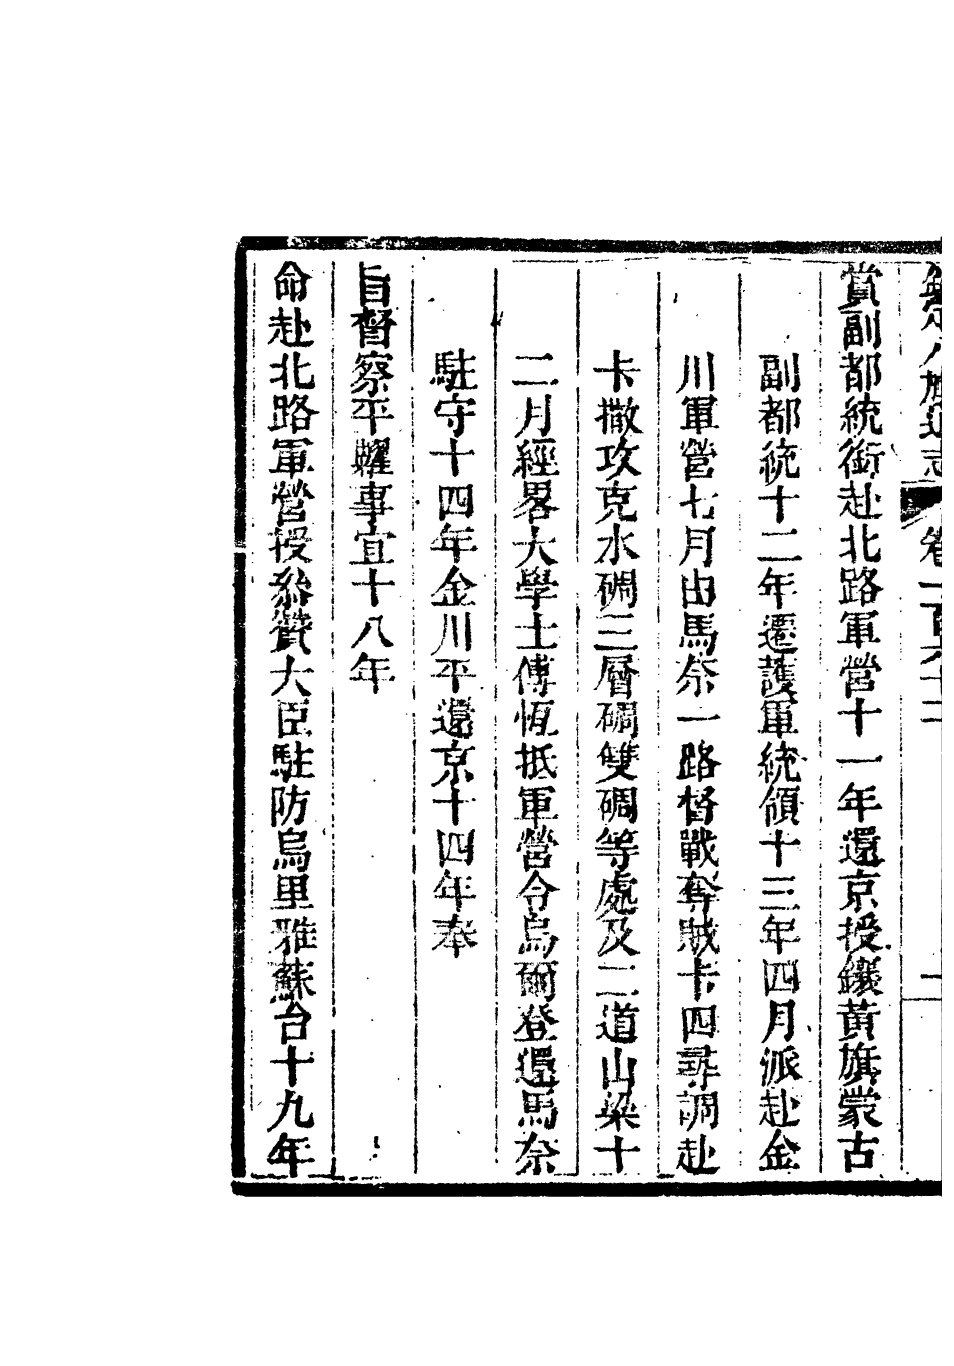 欽定八旗通志 卷一百六十二 一
賞副都統銜赴北路軍營十一年還京授鑲黃旗蒙古
副都統十二年遷護軍統領十三年四月派赴金
川軍營七月由馬奈一路督戰奪賊卡四尋調赴
卡撒攻克水碉三層碉雙碉等處及二道山梁十
二月經畧大學士傅恆抵軍營令烏爾登還馬奈
駐守十四年金川平還京十四年奉
旨督察平糶事宜十八年
命赴北路軍營授叅贊大臣駐防烏里雅蘇台十九年